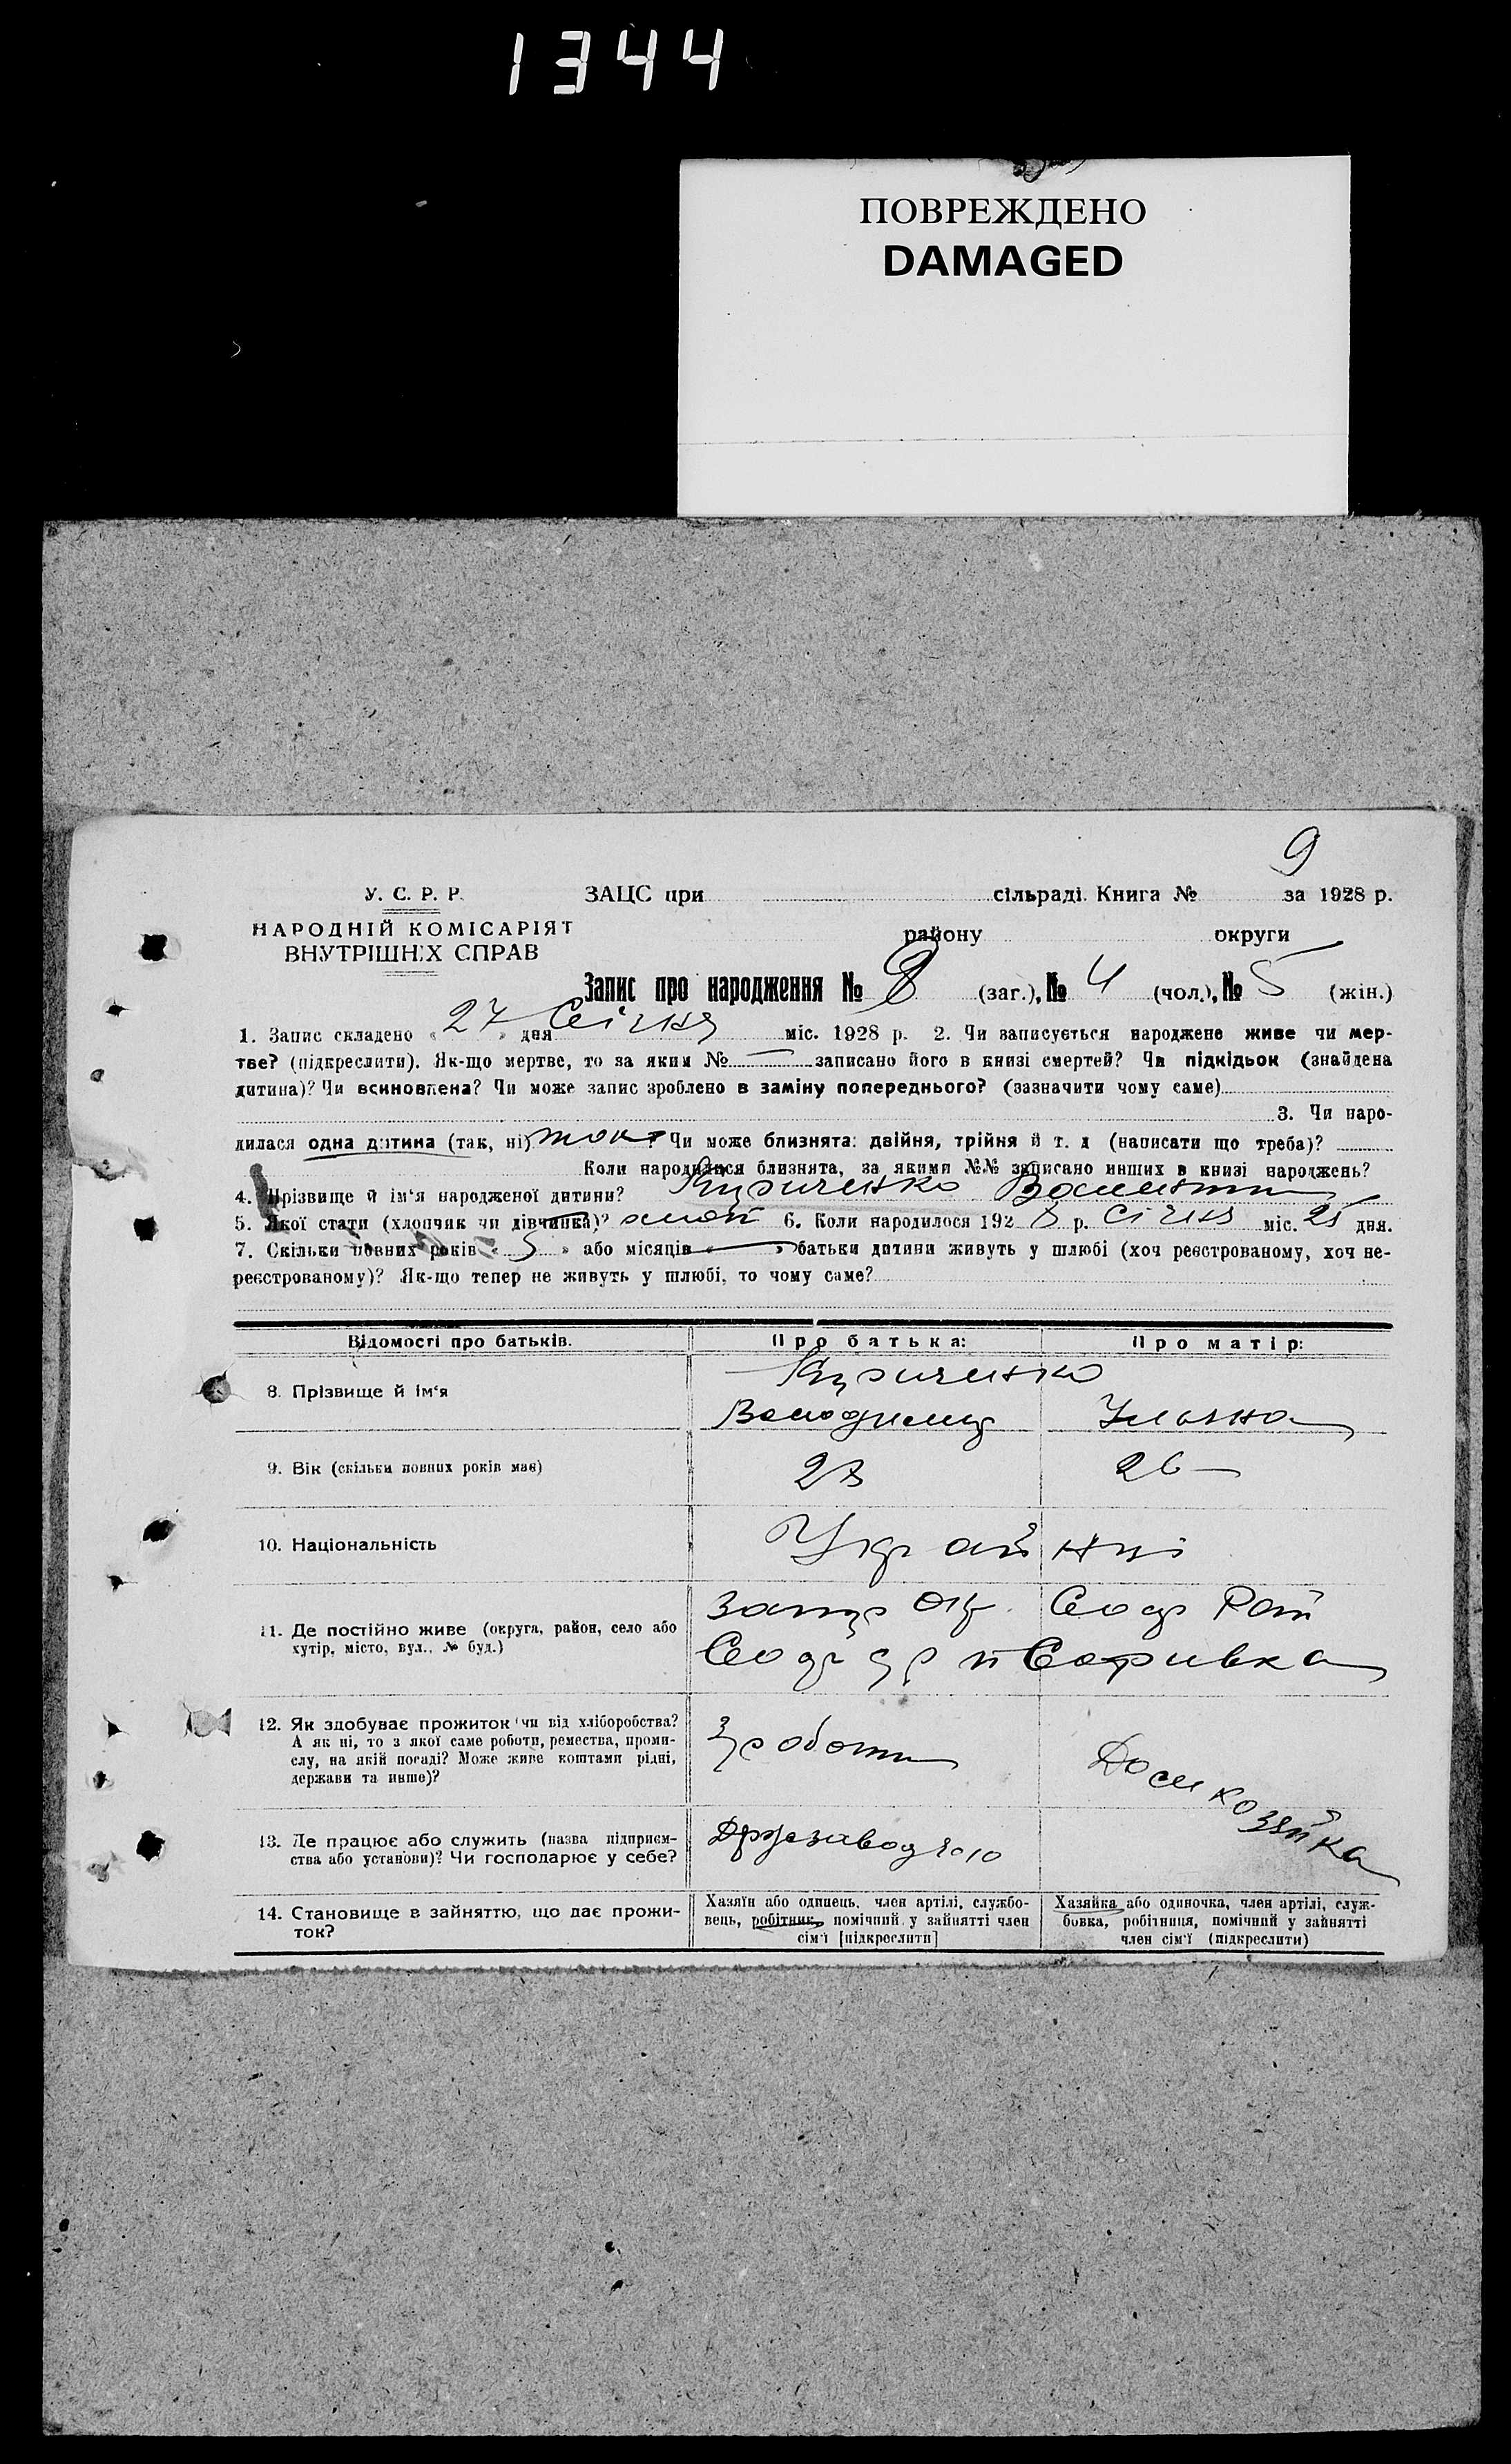 1344
ПОВРЕЖДЕНО
DAMAGED
9
У. С. Р. Р. ЗАЦС при сільраді. Книга № за 1928 р.
НАРОДНІЙ КОМІСАРІЯТ
ВНУТРІШНІХ СПРАВ
району округи
Запис про народження № (заг.), № 4 (чол.), № 5 (жін.)
1. Запис складено « 27 » дня Січня міс. 1928 р. 2. Чи записується народжене живе чи мер-
тве? (підкреслити). Як-що мертве, то за яким № — записано його в книзі смертей? Чи підкідьок (знайдена
дитина)? Чи всиновлена? Чи може запис зроблено в заміну попереднього? (зазначити чому саме)
3. Чи наро-
дилася одна дитина (так, ні) так? Чи може близнята: двійня, трійня й т. д (написати що треба)?
Коли народилися близнята, за якими №№ записано инших в книзі народжень?
4. Прізвище й ім'я народженої дитини? Кириченко Валентин
5. Якої стати (хлопчик чи дівчинка)? 6. Коли народилося 192 8 р. Січня міс. 25 дня.
7. Скільки повних років « 5 » або місяців « — » батьки дитини живуть у шлюбі (хоч реєстрованому, хоч не-
реєстрованому)? Як-що тепер не живуть у шлюбі, то чому саме?
Відомості про батьків. Про батька: Про матір:
8. Прізвище й ім'я Кириченко
Володимир Уляна
9. Вік (скільки повних років має) 28 26
10. Національність Українці
11. Де постійно живе (округа, район, село або
хутір, місто, вул., № буд.)
Софіївка
12. Як здобуває прожиток (чи від хліборобства?
А як ні, то з якої саме роботи, ремества, проми-
слу, на якій посаді? Може живе коштами рідні,
держави та инше)?
З роботи Домхозяйка
13. Де працює або служить (назва підприєм-
ства або установи)? Чи господарює у себе?
14. Становище в зайняттю, що дає прожи-
ток?
Хазяїн або одинець, член артілі, службо-
вець, робітник, помічний у зайнятті член
сім'ї [підкреслити]
Хазяйка або одиночка, член артілі, служ-
бовка, робітниця, помічний у зайнятті
член сім'ї (підкреслити)